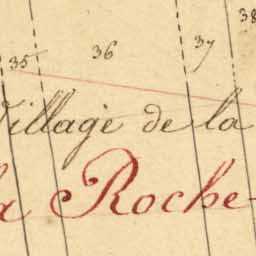 38
35 36 37
Village de la
la Roche-